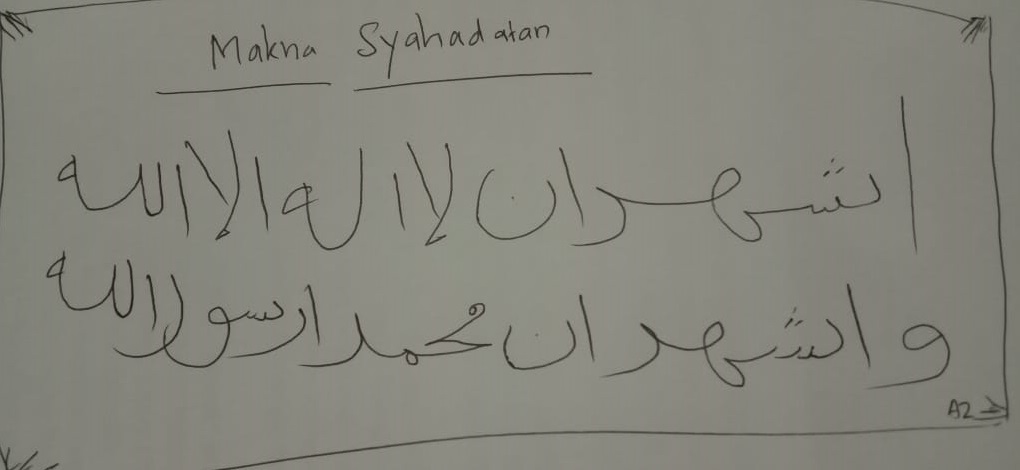 Makna Syahadatan
اشهد ان لا اله الا الله
و اشهد ان محمدا رسول الله
A2